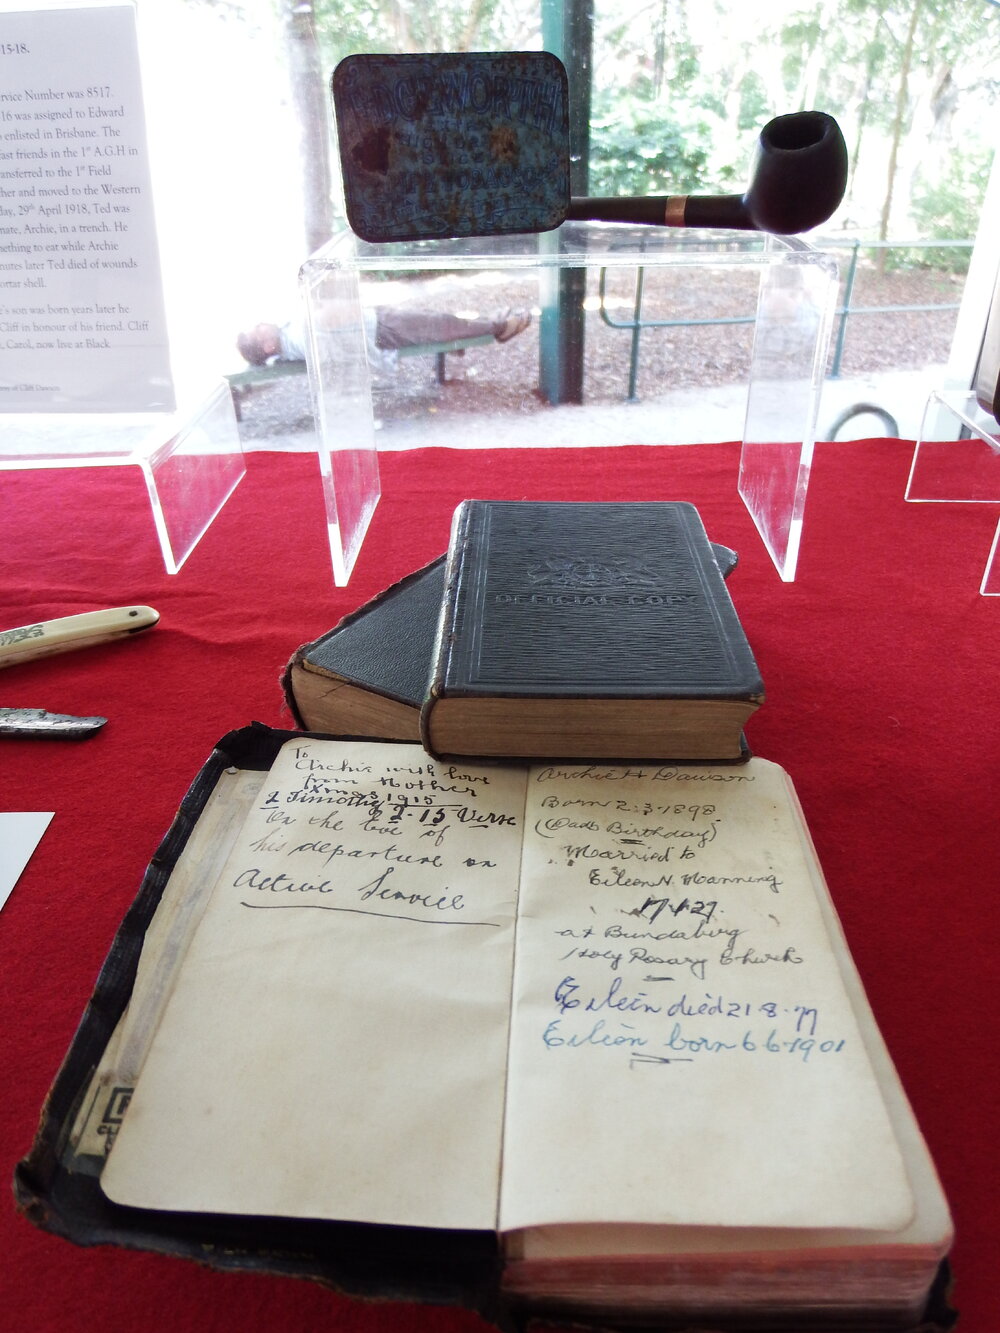 15-18.
rvice Number was 8517.
16 was assigned to Edward
enlisted in Brisbane. The
fast friends in the 1st A.G.H in
ansferred to the 1st Field
her and moved to the Western
day, 29th April 1918, Ted was
mate, Archie, in a trench. He
mething to eat while Archie
nutes later Ted died of wounds
ortar shell.
e's son was born years later he
Cliff in honour of his friend. Cliff
, Carol, now live at Black
of Cliff Dawson
EDGEWORTH
SLICED
PIPE TOBACCO
OFFICIAL COPY
To
Archie with love
from Mother
Xmas 1915
2 Timothy 2-15 Verse
On the Eve of
his departure on
Active Service
Archie H Dawson
Born 2.3.1898
(Dads Birthday)
Married to
Eileen N. Manning
17.1.27.
at Bundaberg
Holy Rosary Church
Eileen died 21-8-77
Eileen born 6 6-1901